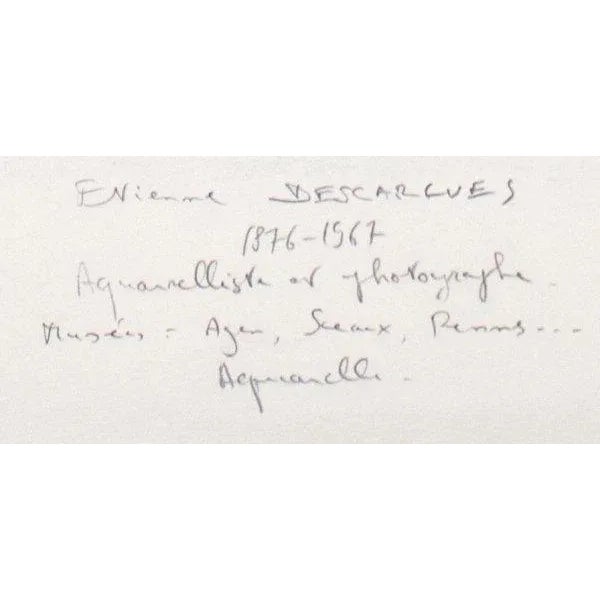 Etienne DESCARGUES
1876-1967
Aquarelliste et photographe.
Musées : Agen, Sceaux, Rennes...
Aquarelle.